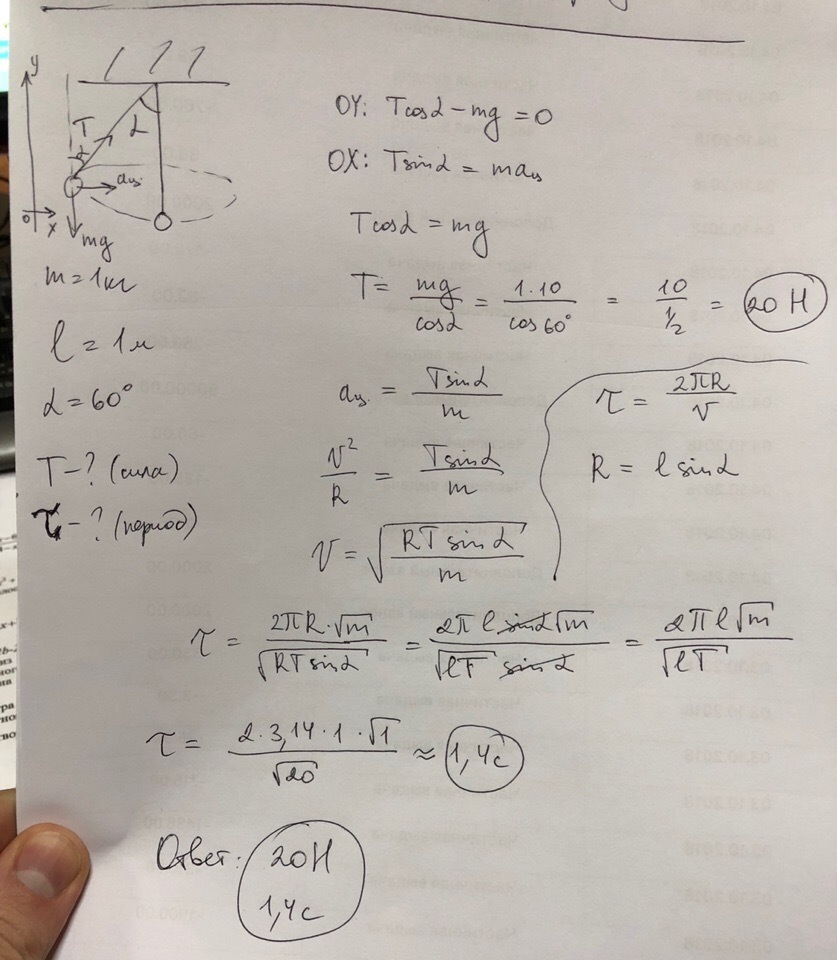 y
T
α
α
aц.
0
x
mg
m = 1кг
l = 1м
α = 60°
T - ? (сила)
τ - ? (период)
OY: Tcosα - mg = 0
OX: Tsinα = maц
Tcosα = mg
T = mg/cosα = 1·10/cos60° = 10/½ = 20 Н
aц. = Tsinα/m
v²/R = Tsinα/m
v = √(RTsinα/m)
τ = 2πR/v
R = l sinα
τ = 2πR·√m/√(RTsinα) = 2π l sinα √m/(√(lT) sinα) = 2πl√m/√(lT)
τ = 2·3,14·1·√1/√20 ≈ 1,4с
Ответ: 20Н
1,4с